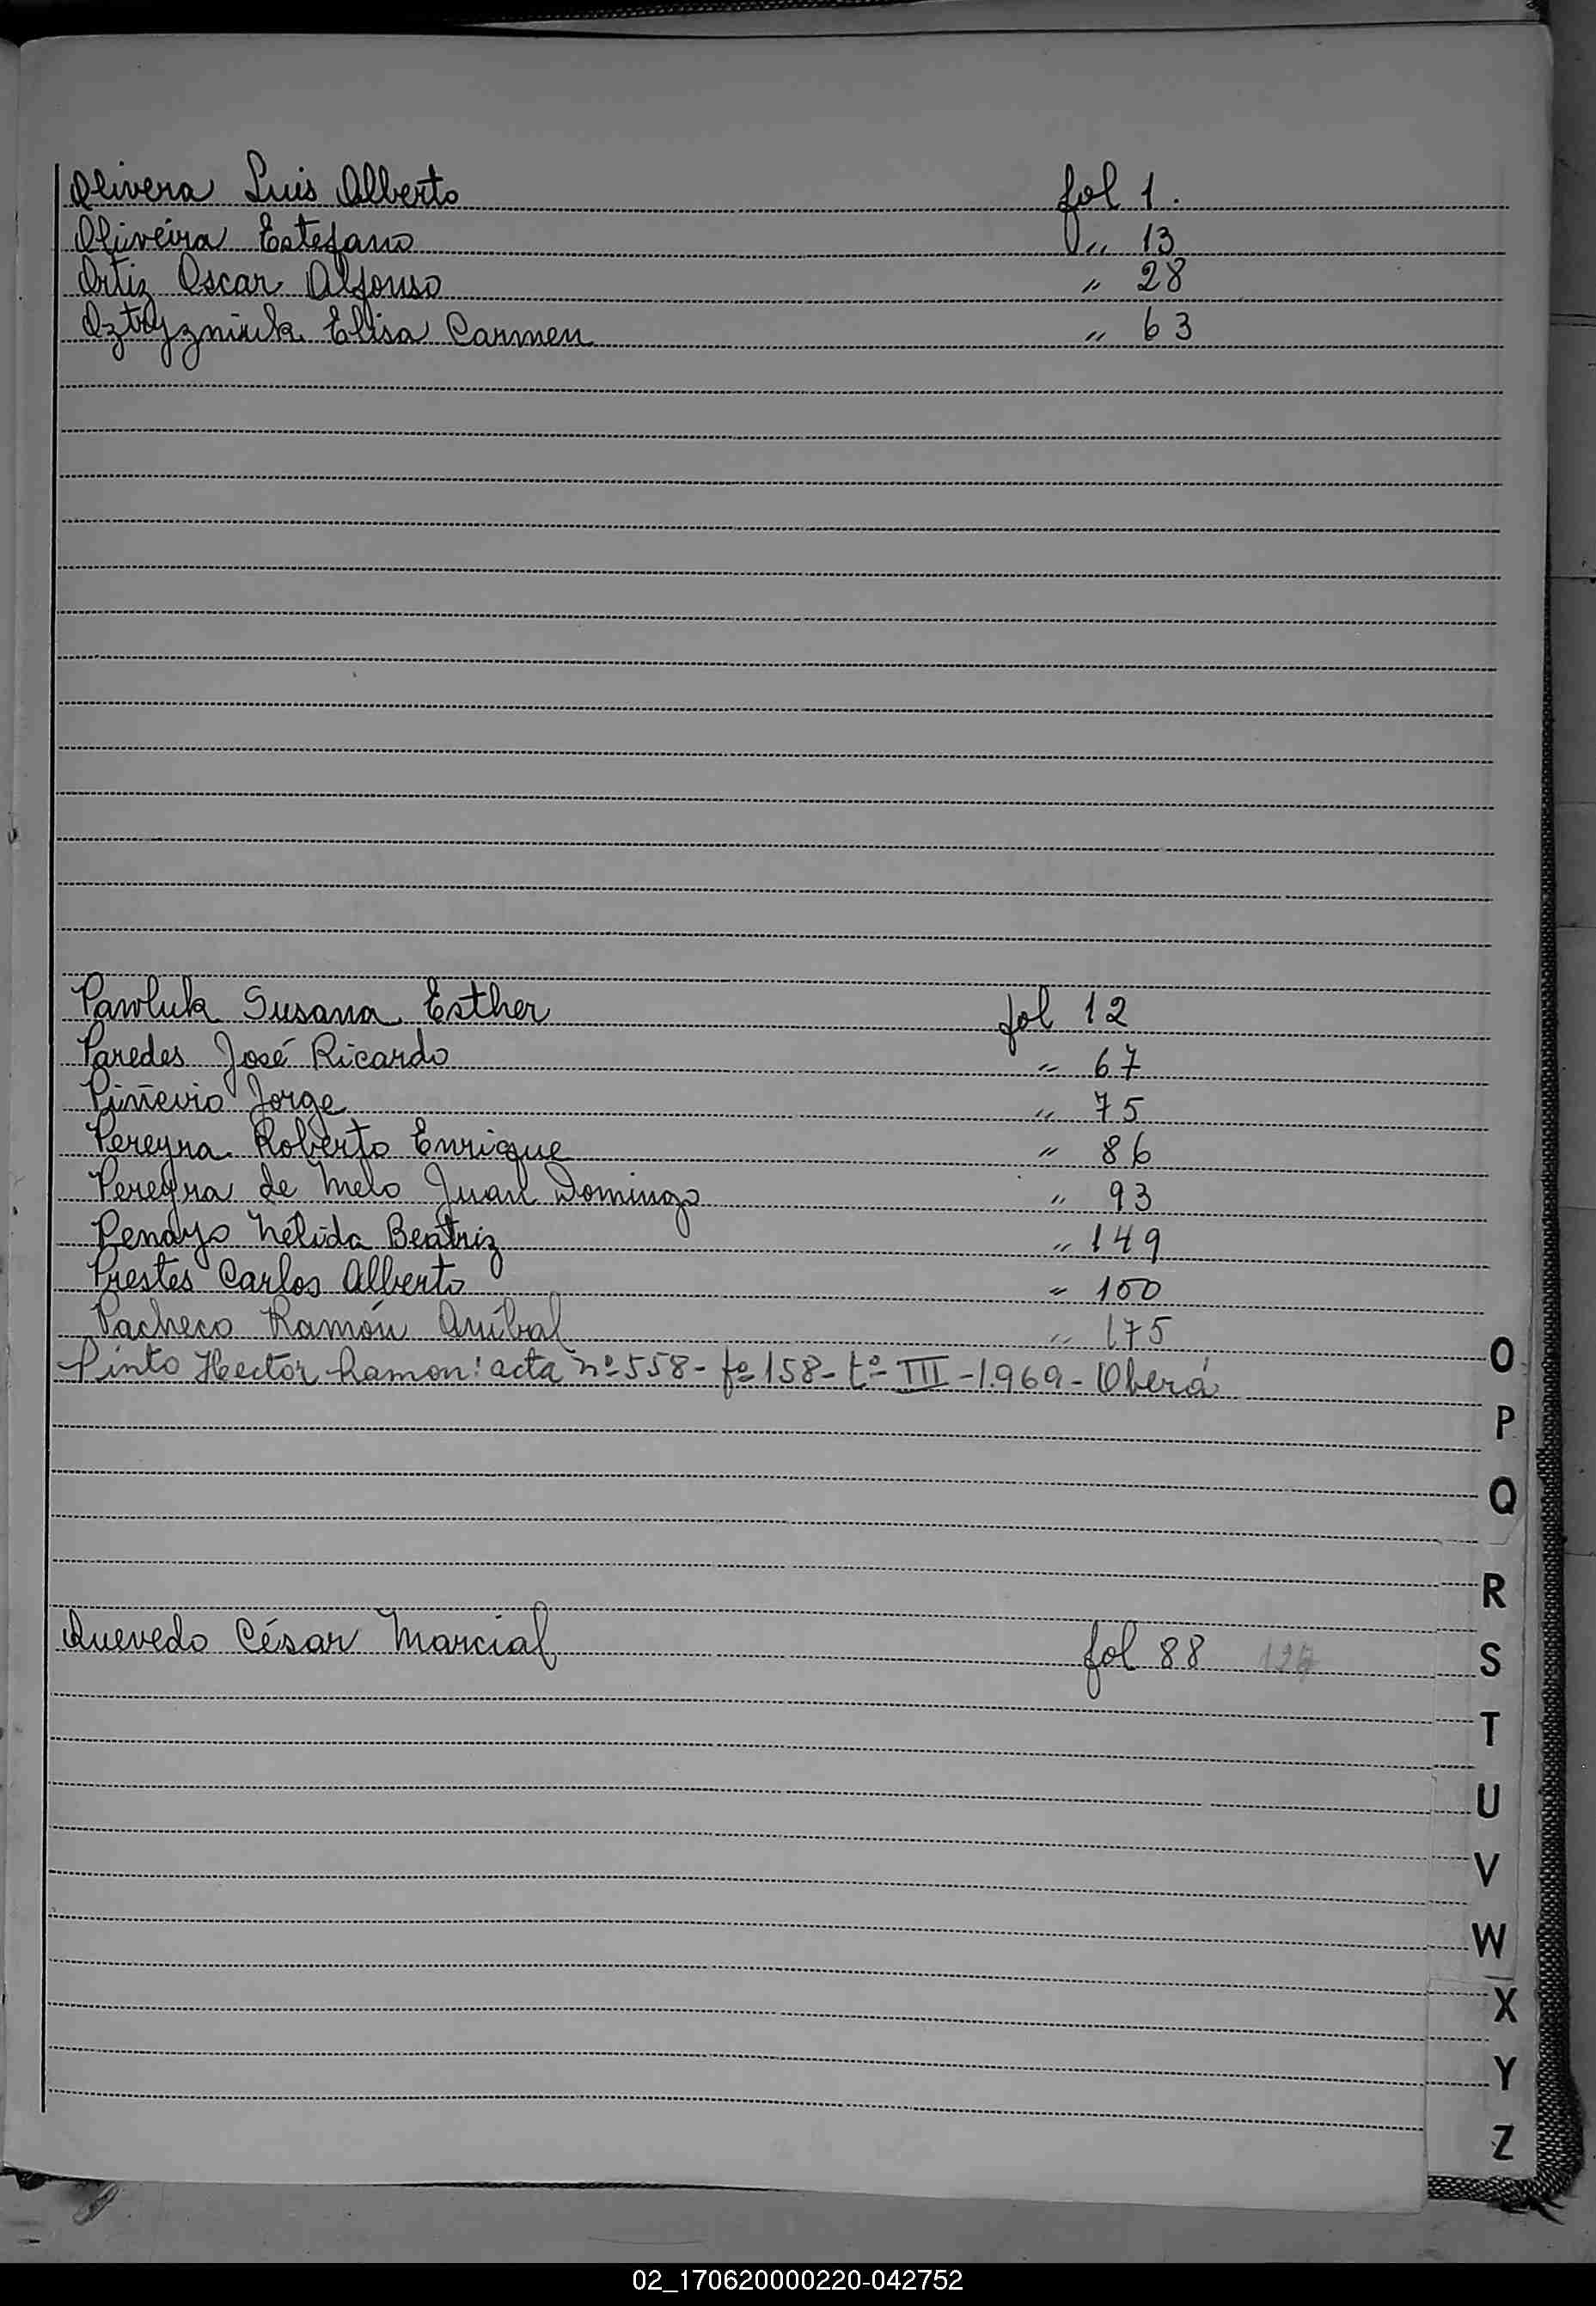 Olivera Luis Alberto fol 1.
Oliveira Estefano " 13
Ortiz Oscar Alfonso " 28
Oztryzniuk Elisa Carmen " 63
Pawluk Susana Esther fol 12
Paredes José Ricardo " 67
Piñevio Jorge " 75
Pereyra Roberto Enrique " 86
Pereyra de Melo Juan Domingo " 93
Penayo Nélida Beatriz " 149
Prestes Carlos Alberto " 100
Pacheco Ramón Aníbal " 175
Pinto Hector Ramon: acta nº 558 - fº 158 - tº III - 1.969 - Oberá
Quevedo César Marcial fol 88
O
P
Q
R
S
T
U
V
W
X
Y
Z
02_170620000220-042752